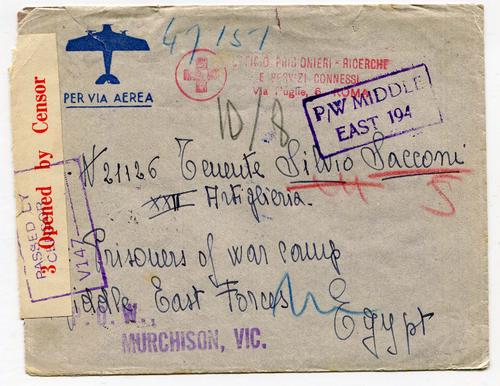 47/151
PER VIA AEREA
UFFICIO PRIGIONIERI - RICERCHE
E SERVIZI CONNESSI
Via Puglie, 6 ROMA
P/W MIDDLE
EAST 194
10/8
3 Opened by Censor
PASSED BY
CENSOR
V147
N 21126 Tenente Silvio Sacconi
XXII Artiglieria.
5
Prisoners of war camp
Middle East Forces
Egypt
P.O.W.,
MURCHISON, VIC.